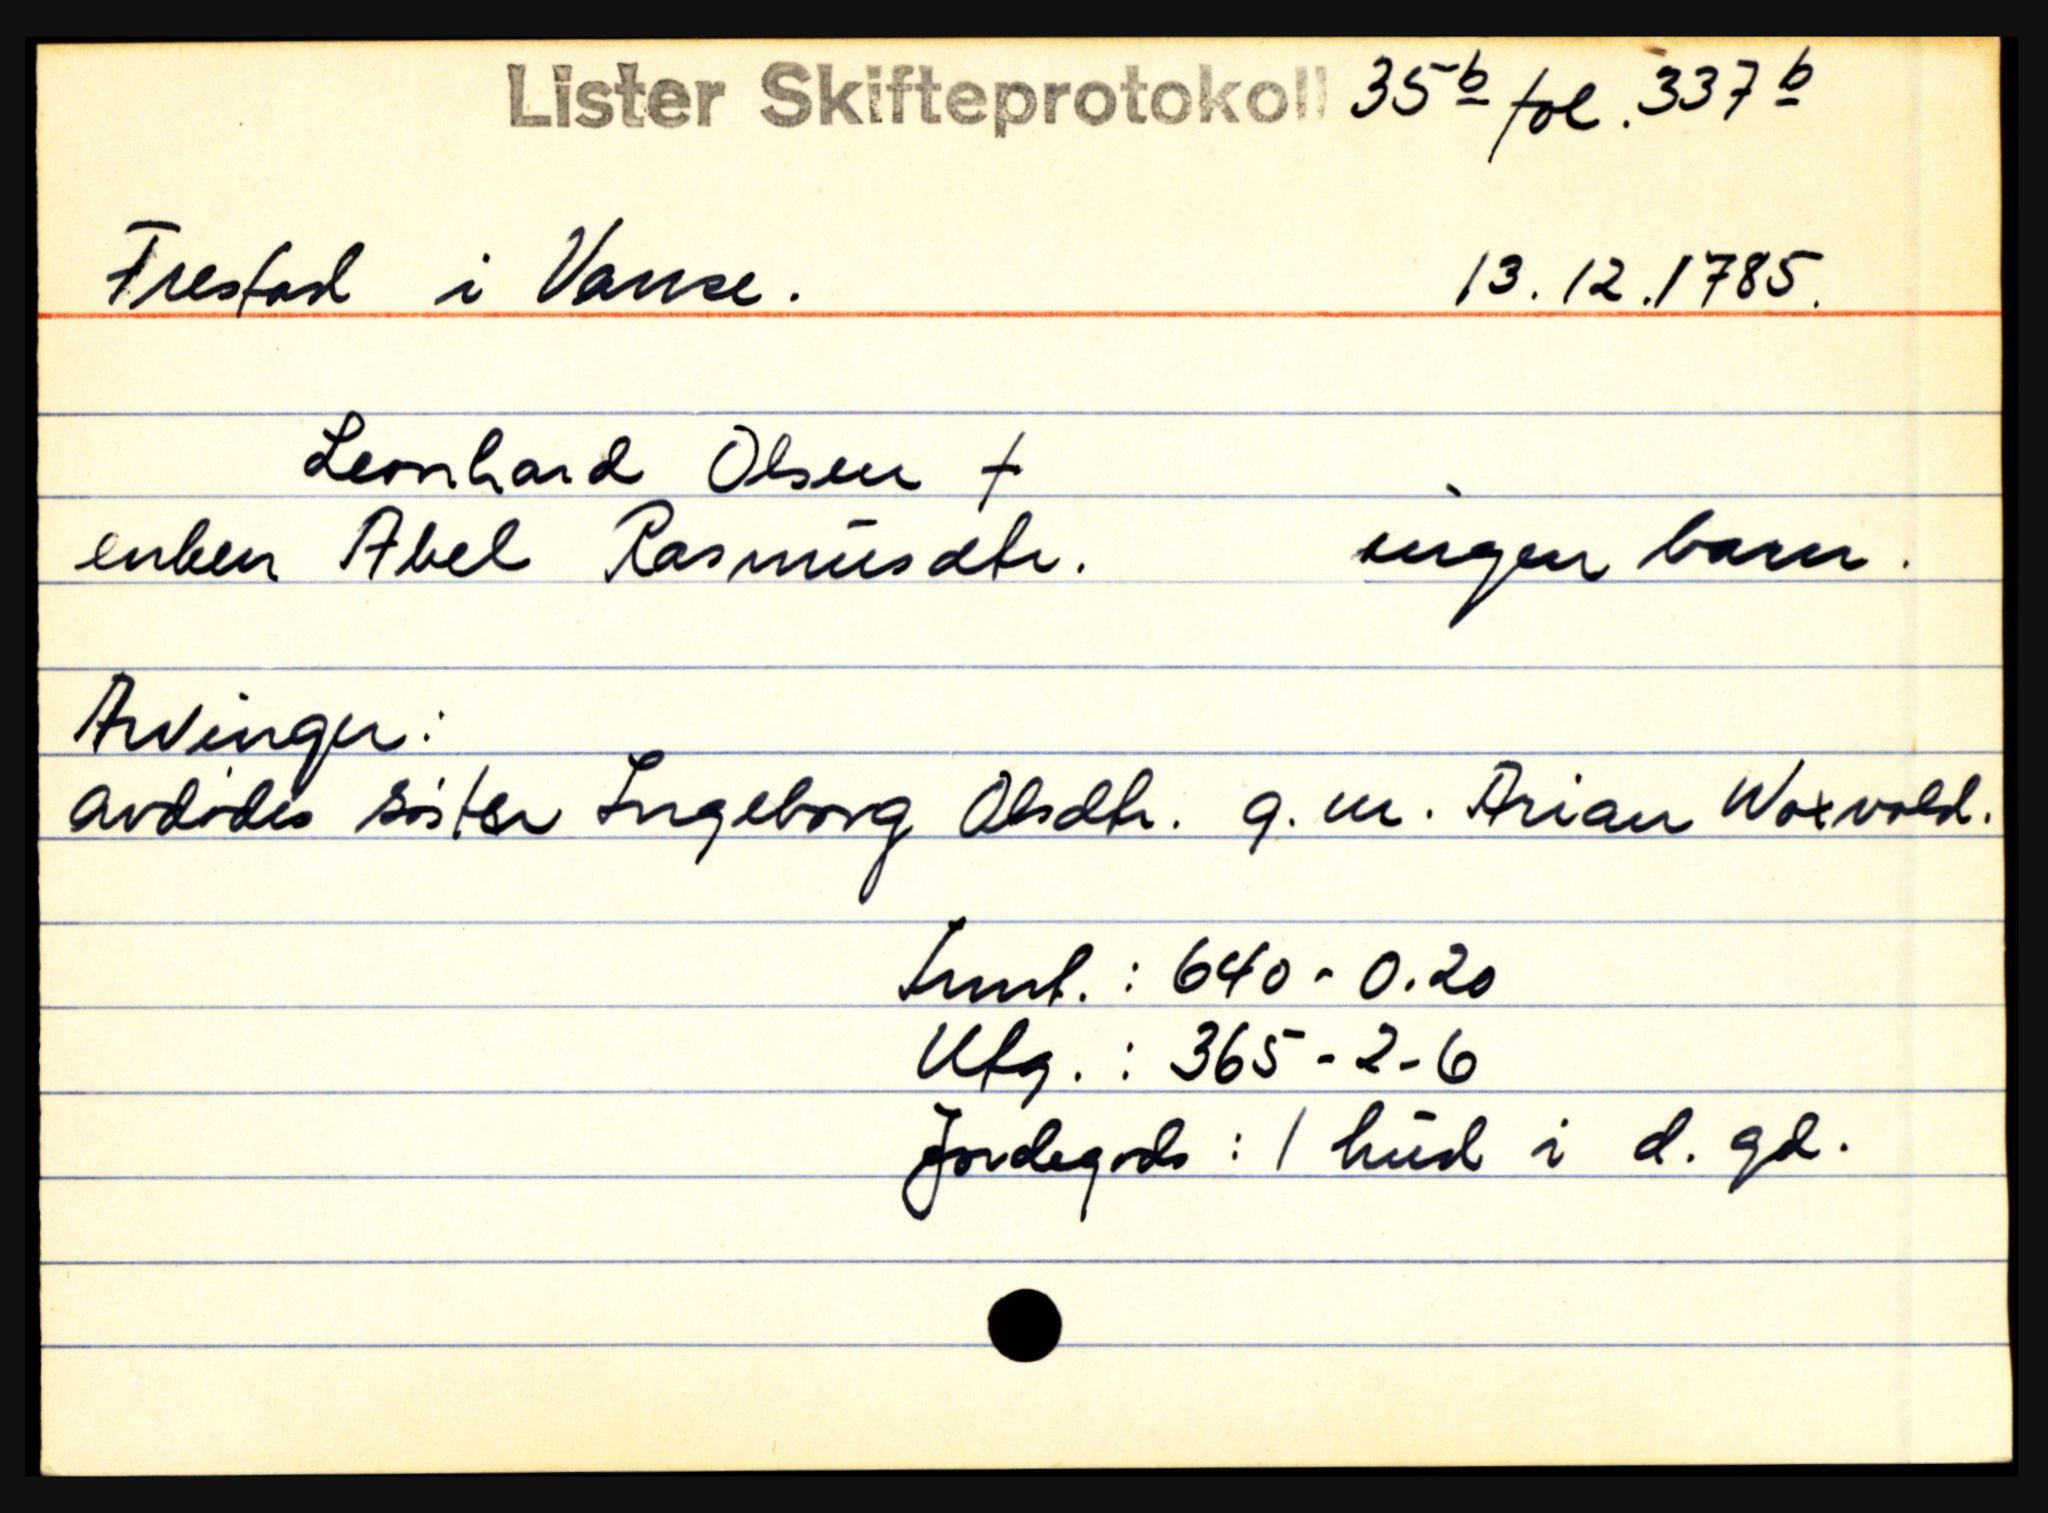 Lister Skifteprotokoll 35b fol. 337b
Frestad i Vanse. 13.12.1785.
Leonhard Olsen +
enken Abel Rasmusdtr. ingen barn.
Arvinger:
avdødes søster Ingeborg Olsdtr. g.m. Arian Woxvold.
Innt.: 640 - 0.20
Utg.: 365 - 2 - 6
Jordegods: 1 hud i d. gd.